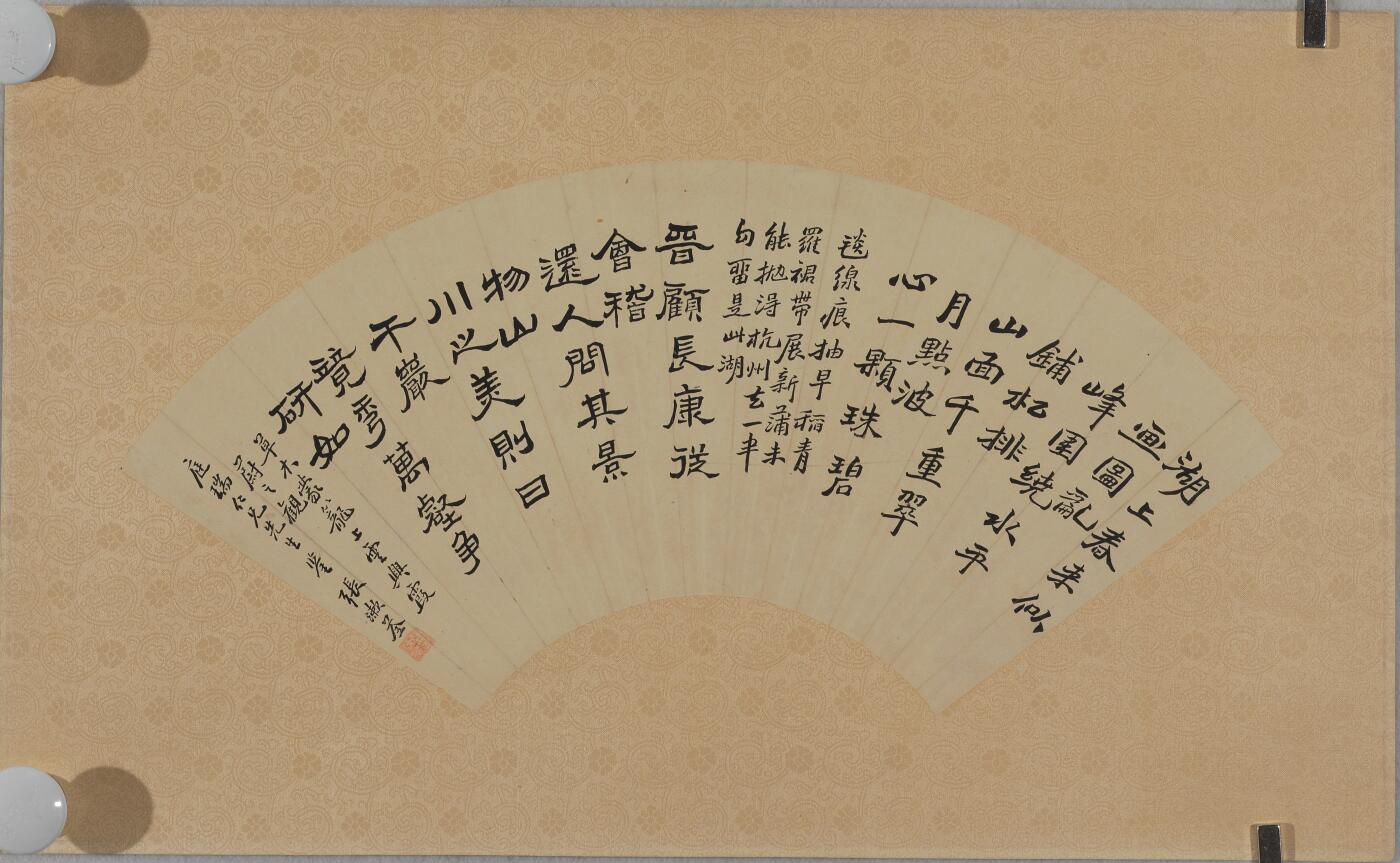 湖上春来似
画圖亂
峰圍繞水平
鋪松排
山面千重翠
月點波
心一顆珠碧
毯線痕抽早稻青
羅裙帶展新蒲未
能抛得杭州去一半
勾留是此湖
晉顧長康從
會稽
還人問其景
物山
川之美則曰
千巖
競秀萬壑爭
流如
草木蒙籠上雲興霞
蔚之觀
庭瑞仁兄先生鑒 張漱